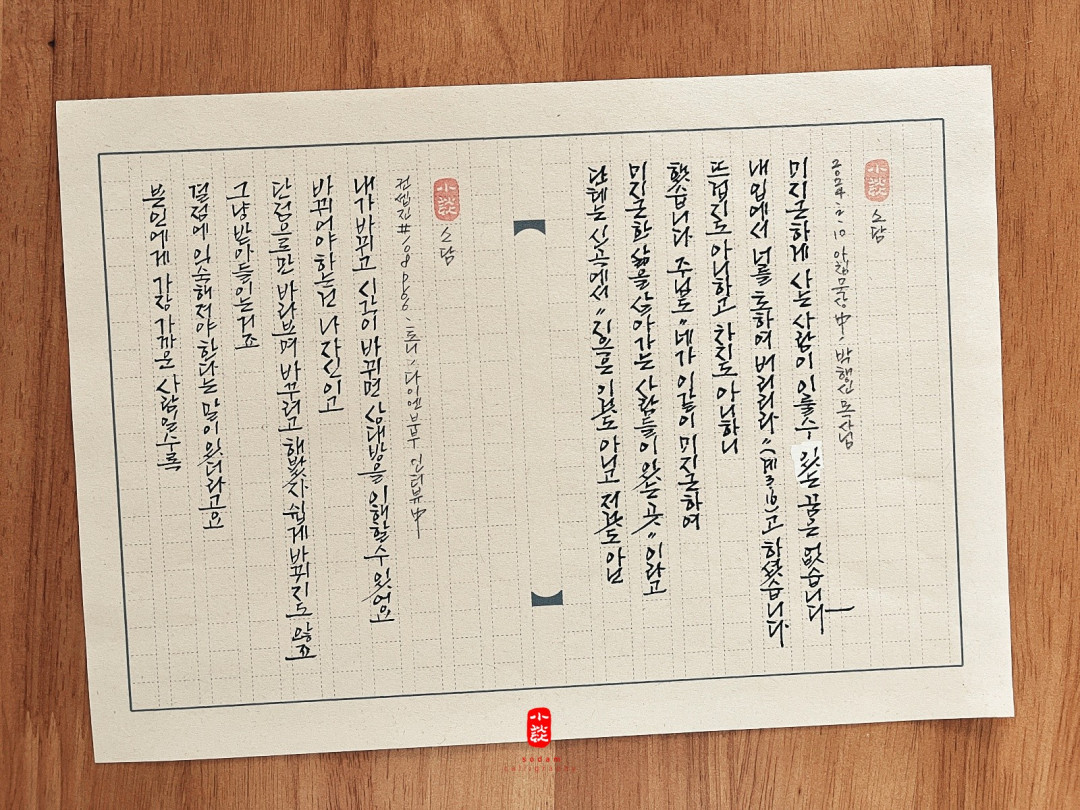 본인에게 가장 가까운 사람일수록
결점에 익숙해져야 한다는 말이 있더라고요
그냥 받아들이는 거죠
단점으로만 바라보며 바꾸려고 해봤자 쉽게 바뀌지도 않죠
바뀌어야 하는 건 나 자신이고
내가 바뀌고 시선이 바뀌면 상대방을 이해할 수 있어요
컨셉진 부부 인터뷰 中
小談 소담
단테는 신곡에서 "지옥은 이쪽도 아니고 저쪽도 아닌
미지근한 삶을 살아가는 사람들이 있는 곳" 이라고
했습니다 주님도 "네가 이같이 미지근하여
뜨겁지도 아니하고 차지도 아니하니
내 입에서 너를 토하여 버리리라"(계3:16)고 하셨습니다.
미지근하게 사는 사람이 이룰 수 있는 꿈은 없습니다
2024.2.10 아침묵상 中, 박행신 목사님
小談 소담
小談
sodam
calligraphy